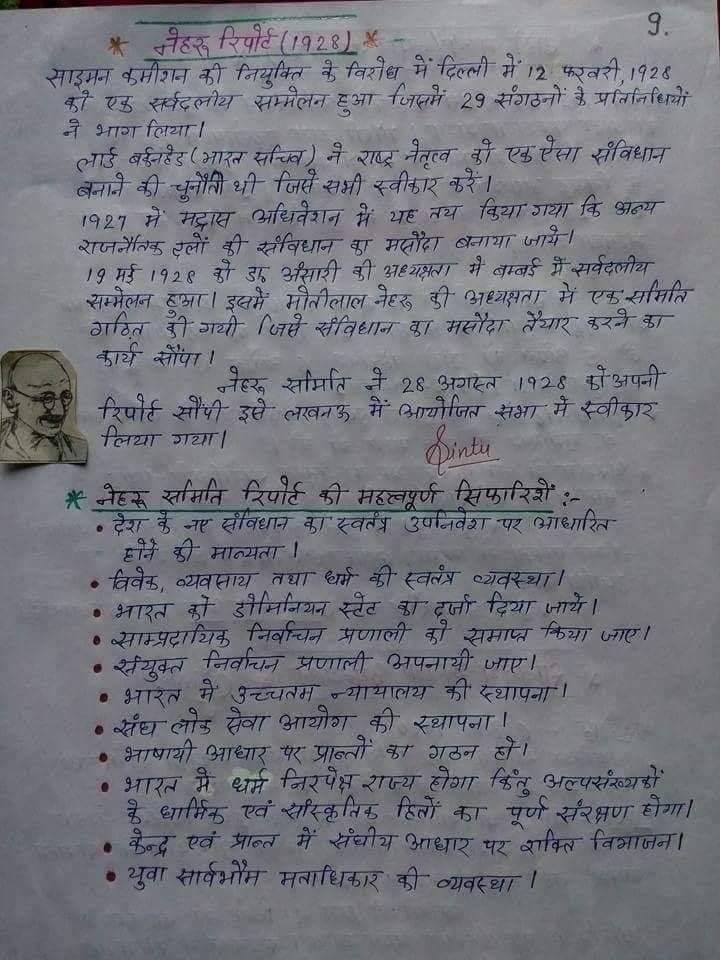 9.
* नेहरू रिपोर्ट (1928) *
साइमन कमीशन की नियुक्ति के विरोध में दिल्ली में 12 फरवरी, 1928
को एक सर्वदलीय सम्मेलन हुआ जिसमें 29 संगठनों के प्रतिनिधियों
ने भाग लिया।
लार्ड बर्कनहेड (भारत सचिव) ने राष्ट्र नेतृत्व को एक ऐसा संविधान
बनाने की चुनौती थी जिसे सभी स्वीकार करें।
1927 में मद्रास अधिवेशन में यह तय किया गया कि अन्य
राजनैतिक दलों की संविधान का मसौदा बनाया जाये।
19 मई 1928 को डा० अंसारी की अध्यक्षता में बम्बई में सर्वदलीय
सम्मेलन हुआ। इसमें मोतीलाल नेहरू की अध्यक्षता में एक समिति
गठित की गयी जिसे संविधान का मसौदा तैयार करने का
कार्य सौंपा।
नेहरू समिति ने 28 अगस्त 1928 को अपनी
रिपोर्ट सौंपी इसे लखनऊ में आयोजित सभा में स्वीकार
लिया गया।
Sintu
* नेहरू समिति रिपोर्ट की महत्वपूर्ण सिफारिशें :-
• देश के नए संविधान का स्वतंत्र उपनिवेश पर आधारित
होने की मान्यता।
• विवेक, व्यवसाय तथा धर्म की स्वतंत्र व्यवस्था।
• भारत को डोमिनियन स्टेट का दर्जा दिया जाये।
• साम्प्रदायिक निर्वाचन प्रणाली को समाप्त किया जाए।
• संयुक्त निर्वाचन प्रणाली अपनायी जाए।
• भारत में उच्चतम न्यायालय की स्थापना।
• संघ लोक सेवा आयोग की स्थापना।
• भाषायी आधार पर प्रान्तों का गठन हो।
• भारत में धर्म निरपेक्ष राज्य होगा किंतु अल्पसंख्यकों
के धार्मिक एवं सांस्कृतिक हितों का पूर्ण संरक्षण होगा।
• केन्द्र एवं प्रान्त में संघीय आधार पर शक्ति विभाजन।
• युवा सार्वभौम मताधिकार की व्यवस्था।